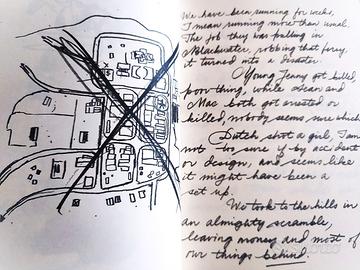 We have been running for weeks,
I mean running more than usual.
The job they was pulling in
Blackwater, robbing that ferry,
it turned into a disaster.
Young Jenny got killed,
poor thing, while Sean and
Mac both got arrested or
killed, nobody seems sure which.
Dutch shot a girl, I am
not so sure if by accident
or design, and seems like
it might have been a
set up.
We took to the hills in
an almighty scramble,
leaving money and most of
our things behind.